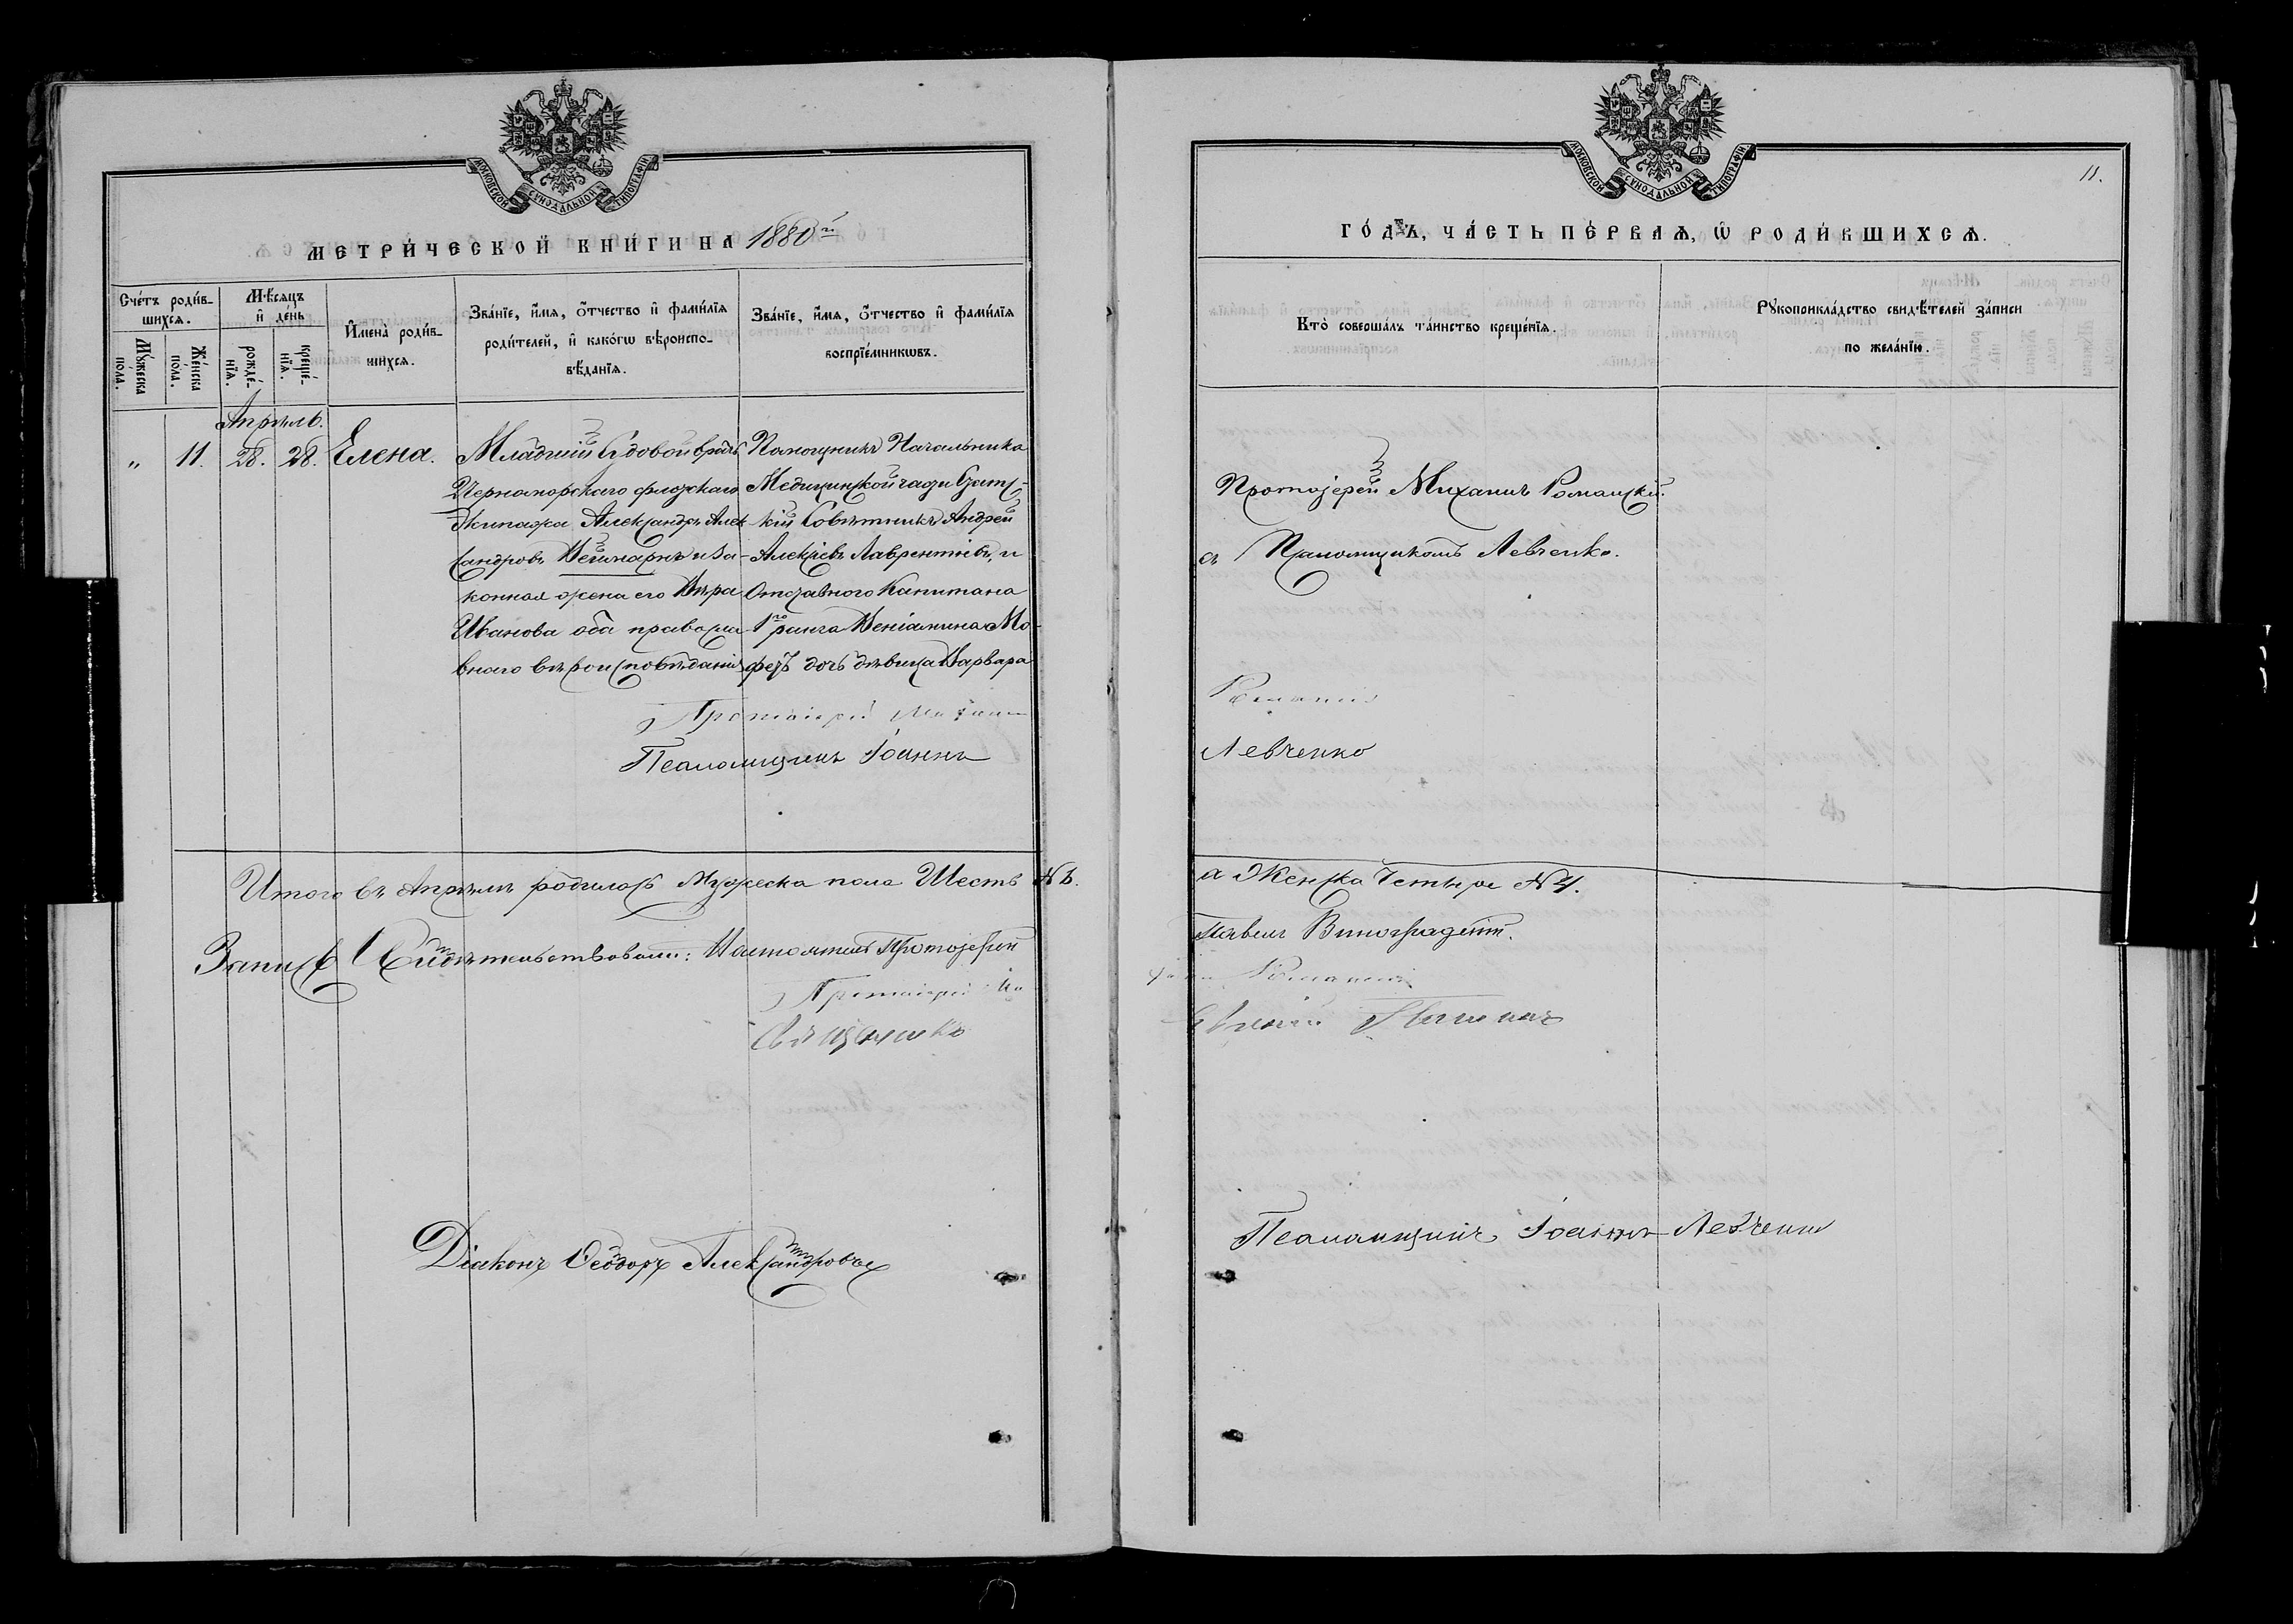 МОСКОВСКОЙ СѴНОДАЛЬНОЙ ТИПОГРАФІИ
МЕТРИ́ЧЕСКОЙ КНИ́ГИ НА 1880й
Сче́тъ роди́в-
шихсѧ.
Мꙋ́жеска
по́ла.
Же́нска
по́ла.
Мѣ́сѧцъ
и҆ де́нь
рожде́-
нїѧ.
креще́-
нїѧ.
И҆мена̀ роди́в-
шихсѧ.
Зва́нїе, и҆́мѧ, ѻ҆́тчество и҆ фами́лїѧ
роди́телей, и҆ како́гѡ вѣроиспо-
вѣ́данїѧ.
Зва́нїе, и҆́мѧ, ѻ҆́тчество и҆ фами́лїѧ
воспрїе́мникѡвъ.
Апрѣль.
„ 11. 28. 28. Елена.
Младшій Судовой врачъ
Черноморскаго флотскаго
Экипажа Александръ Алек
сандровъ Вейнмарнъ и за-
конная жена его Вѣра
Иванова оба правосла-
внаго вѣроисповѣданія
Помощникъ Начальника
Медицинской части Статс-
кій Совѣтникъ Андрей
Алексіевъ Лаврентіевъ, и
Отставного Капитана
1го ранга Веніамина Мо-
фетъ дочь дѣвица Варвара
Протоіерей Михаилъ
Псаломщикъ Іоаннъ
Итого въ Апрѣлѣ родилось Мужеска пола Шесть № 6.
Запись Свидѣтельствовали: Настоятель Протоіерей
Протоіерей
Священникъ
Діаконъ Ѳеодоръ Александровъ
МОСКОВСКОЙ СѴНОДАЛЬНОЙ ТИПОГРАФІИ
11.
ГО́ДЪ, ЧА́СТЬ ПЕ́РВАѦ, Ѡ҆ РОДИ́ВШИХСѦ.
Кто̀ соверша́лъ та́инство креще́нїѧ.
Рꙋкоприкла́дство свидѣ́телей за́писи
по жела́нїю.
Протоіерей Михаилъ Романскій
съ Псаломщикомъ Левченко.
Романскій
Левченко
а Женска Четыре № 4.
Павелъ Виноградовъ.
Романскій
Псаломщикъ Іоаннъ Левченко